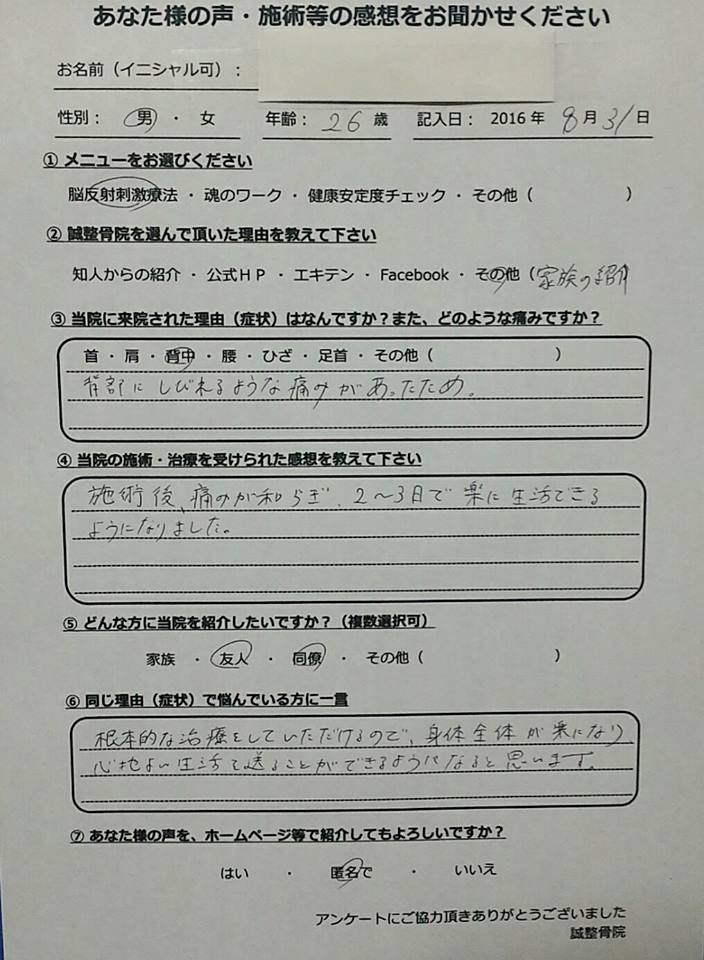 あなた様の声・施術等の感想をお聞かせください
お名前（イニシャル可）：
性別： 男 ・ 女 年齢： 26 歳 記入日： 2016 年 8 月 31 日
① メニューをお選びください
脳反射刺激療法 ・ 魂のワーク ・ 健康安定度チェック ・ その他（ ）
② 誠整骨院を選んで頂いた理由を教えて下さい
知人からの紹介 ・ 公式ＨＰ ・ エキテン ・ Facebook ・ その他（家族の紹介
③ 当院に来院された理由（症状）はなんですか？また、どのような痛みですか？
首 ・ 肩 ・ 背中 ・ 腰 ・ ひざ ・ 足首 ・ その他（ ）
背部にしびれるような痛みがあったため。
④ 当院の施術・治療を受けられた感想を教えて下さい
施術後、痛みが和らぎ、2～3日で楽に生活できる
ようになりました。
⑤ どんな方に当院を紹介したいですか？（複数選択可）
家族 ・ 友人 ・ 同僚 ・ その他（ ）
⑥ 同じ理由（症状）で悩んでいる方に一言
根本的な治療をしていただけるので、身体全体が楽になり
心地よい生活を送ることができるようになると思います。
⑦ あなた様の声を、ホームページ等で紹介してもよろしいですか？
はい ・ 匿名で ・ いいえ
アンケートにご協力頂きありがとうございました
誠整骨院